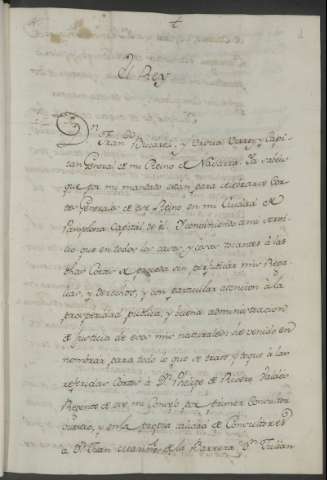 El Rey
Dn. Fran.co Bucareli, y Ursua Virrey y Capi-
tan General de mi Reino de Navarra. Ya sabeis
que por mi mandato están para celebrarse Cor-
tes Generales de ese Reino en mi Ciudad de
Pamplona Capital de él. Y conviniendo a mi servi-
cio que en todos los casos, y cosas tocantes á las
dhas Cortes se proceda sin perjudicar mis Rega-
lias, y derechos, y con particular atencion á la
prosperidad publica, y buena administracion
de justicia de esos mis naturales he venido en
nombrar para todo lo que se trate y toque á las
referidas Cortes á Dn. Phelipe de Rivero Valdés
Regente de ese mi Consejo por primer Consultor
, y en la propia calidad de Consultores
a Dn. Fran. de la Barrera Dn. Julian